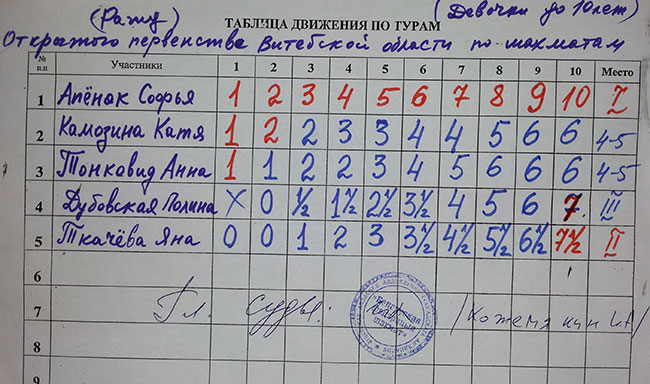 (Рапид) (Девочки до 10 лет)
ТАБЛИЦА ДВИЖЕНИЯ ПО ТУРАМ
Открытого первенства Витебской области по шахматам
№ п.п Участники 1 2 3 4 5 6 7 8 9 10 Место
1 Апёнак Софья 1 2 3 4 5 6 7 8 9 10 I
2 Камозина Катя 1 2 2 3 3 4 4 5 6 6 4-5
3 Тонкавид Анна 1 1 2 2 3 4 5 6 6 6 4-5
4 Дубовская Полина X 0 1/2 1 1/2 2 1/2 3 1/2 4 5 6 7 III
5 Ткачёва Яна 0 0 1 2 3 3 1/2 4 1/2 5 1/2 6 1/2 7 1/2 II
6
7 Гл. судья: /Кожемякин
8
9